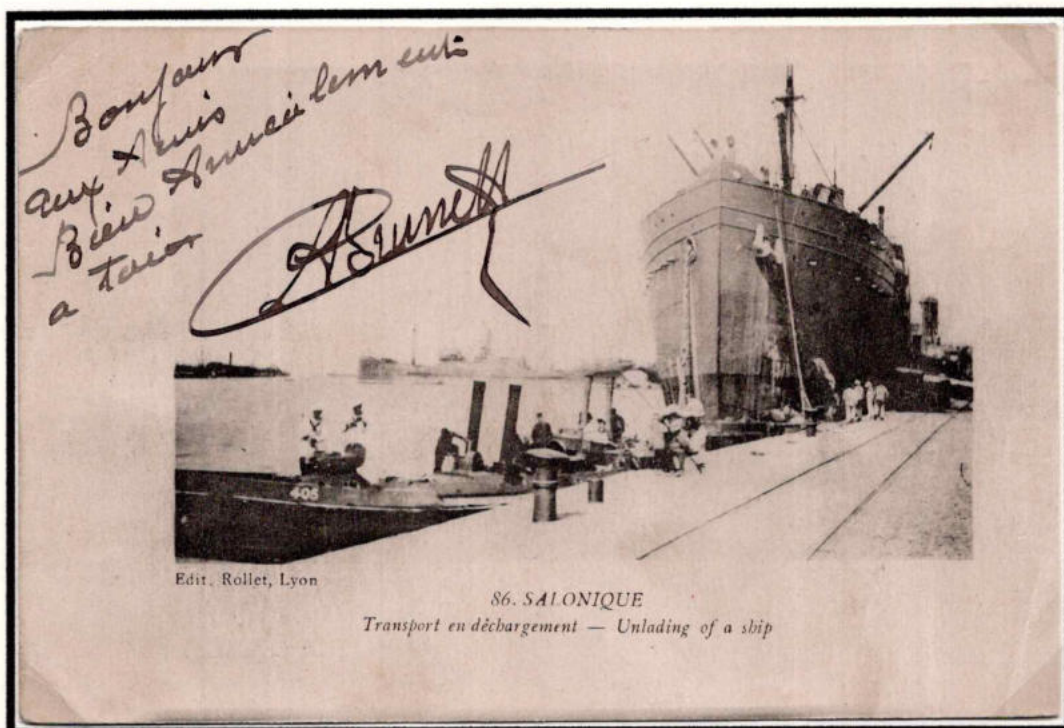 Bonjour
aux Amis
Bien Amicalement
a toi
405
Edit. Rollet, Lyon
86. SALONIQUE
Transport en déchargement — Unlading of a ship